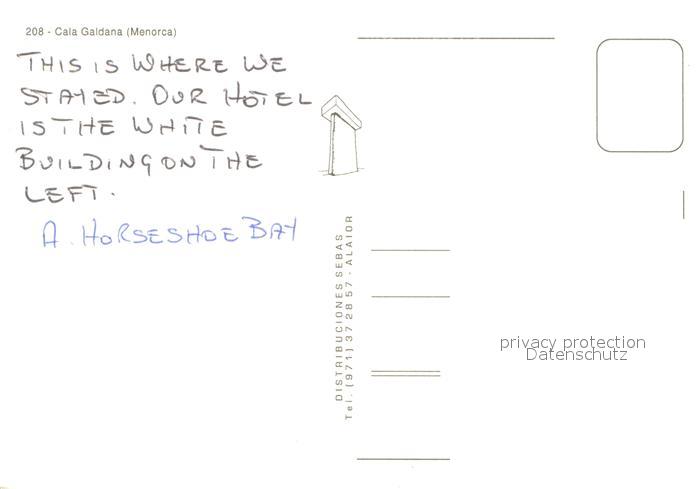 208 - Cala Galdana (Menorca)
THIS IS WHERE WE
STAYED. OUR HOTEL
IS THE WHITE
BUILDING ON THE
LEFT.
A. HORSESHOE BAY
DISTRIBUCIONES SEBAS
Tel. (971) 372857 - ALAIOR
privacy protection
Datenschutz